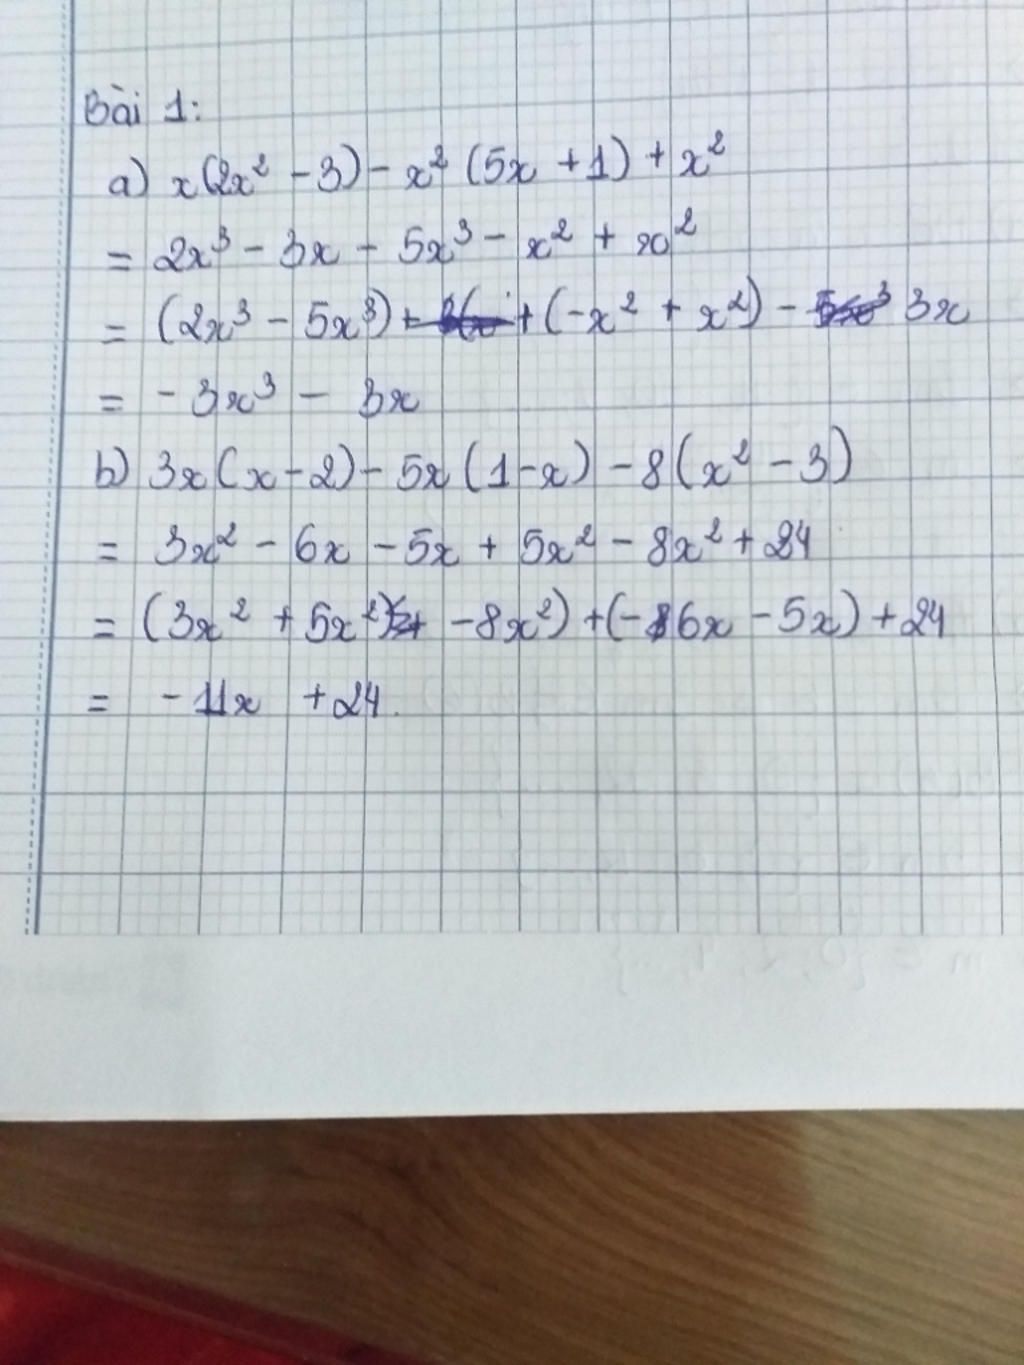 Bài 1:
a) x(2x² - 3) - x² (5x + 1) + x²
= 2x³ - 3x - 5x³ - x² + x²
= (2x³ - 5x³) + (-x² + x²) - 3x
= -3x³ - 3x
b) 3x(x-2) - 5x(1-x) - 8(x² - 3)
= 3x² - 6x - 5x + 5x² - 8x² + 24
= (3x² + 5x² - 8x²) + (-6x - 5x) + 24
= -11x + 24